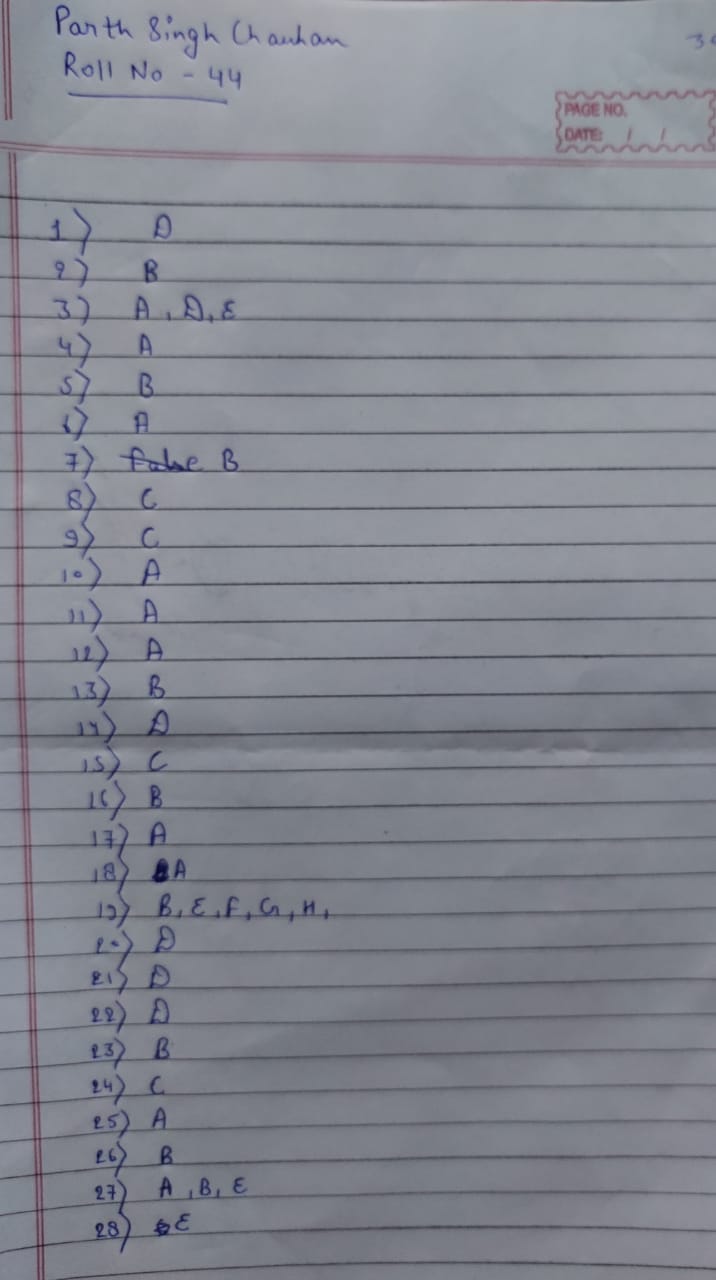 Parth Singh Chauhan
Roll No - 44
PAGE NO.
DATE: / /
1) D
2) B
3) A, D, E
4) A
5) B
6) A
7) false B
8) C
9) C
10) A
11) A
12) A
13) B
14) D
15) C
16) B
17) A
18) A
19) B, E, F, G, H,
20) D
21) D
22) D
23) B
24) C
25) A
26) B
27) A, B, E
28) E